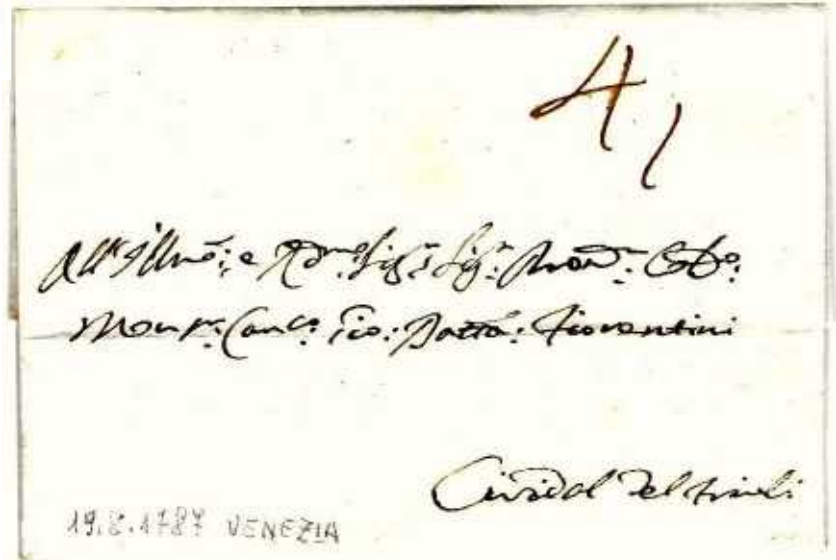 4 /
All' Illmo: e Rdmo Sigr Sigr Pron: Colmo:
Monsr: Canco: Gio: Batta: Fiorentini
Cividal del Friuli
19.8.1787 VENEZIA